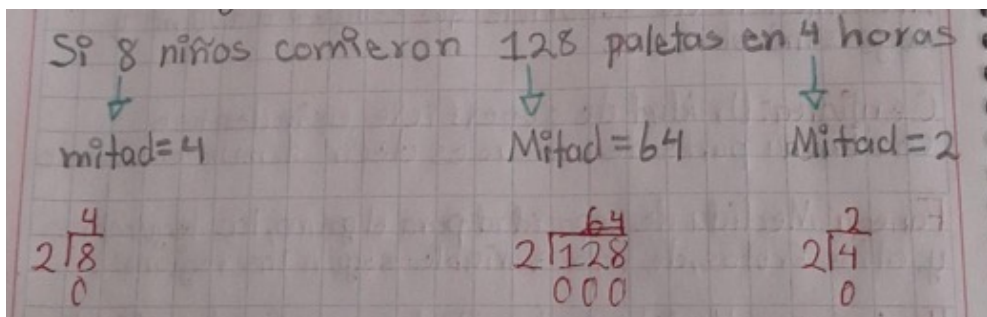 Si 8 niños comieron 128 paletas en 4 horas
mitad=4 Mitad=64 Mitad=2
4 64 2
2 8 2 128 2 4
0 000 0